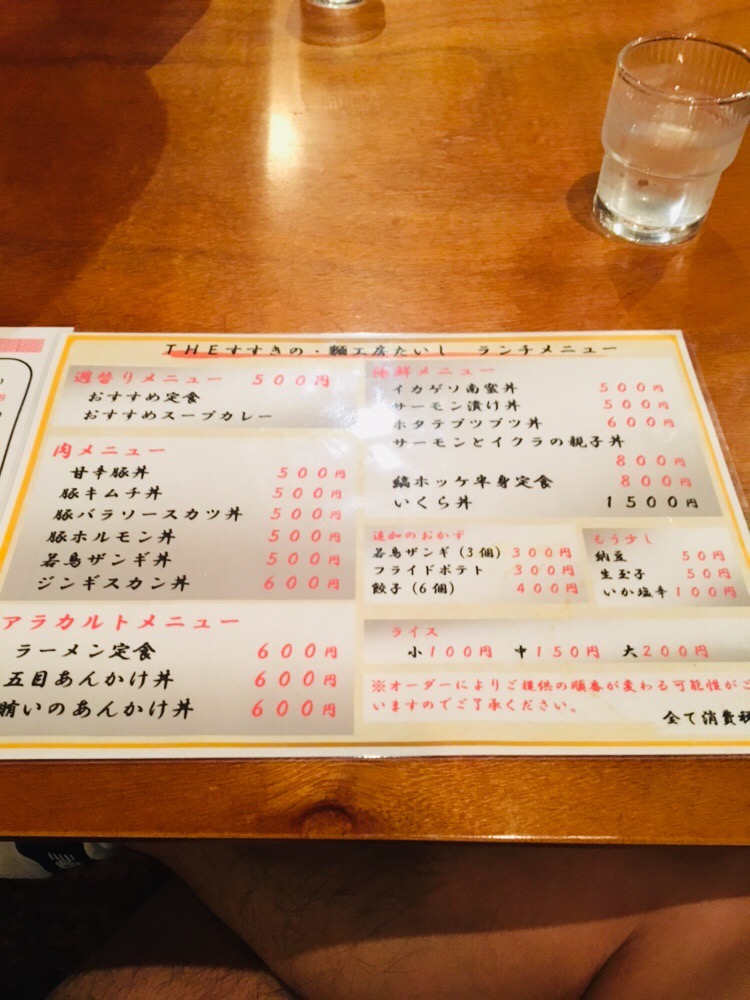 THEすすきの・麺工房たいし ランチメニュー
週替りメニュー 500円
おすすめ定食
おすすめスープカレー
肉メニュー
甘辛豚丼 500円
豚キムチ丼 500円
豚バラソースカツ丼 500円
豚ホルモン丼 500円
若鳥ザンギ丼 500円
ジンギスカン丼 600円
アラカルトメニュー
ラーメン定食 600円
五目あんかけ丼 600円
賄いのあんかけ丼 600円
海鮮メニュー
イカゲソ南蜜丼 500円
サーモン漬け丼 500円
ホタテブツブツ丼 600円
サーモンとイクラの親子丼
800円
縞ホッケ半身定食 800円
いくら丼 1500円
追加のおかず
若鳥ザンギ(3個) 300円
フライドポテト 300円
餃子(6個) 400円
もう少し
納豆 50円
生玉子 50円
いか塩辛 100円
ライス
小100円 中150円 大200円
※オーダーによりご提供の順番が変わる可能性がご
いますのでご了承ください。
全て消費税